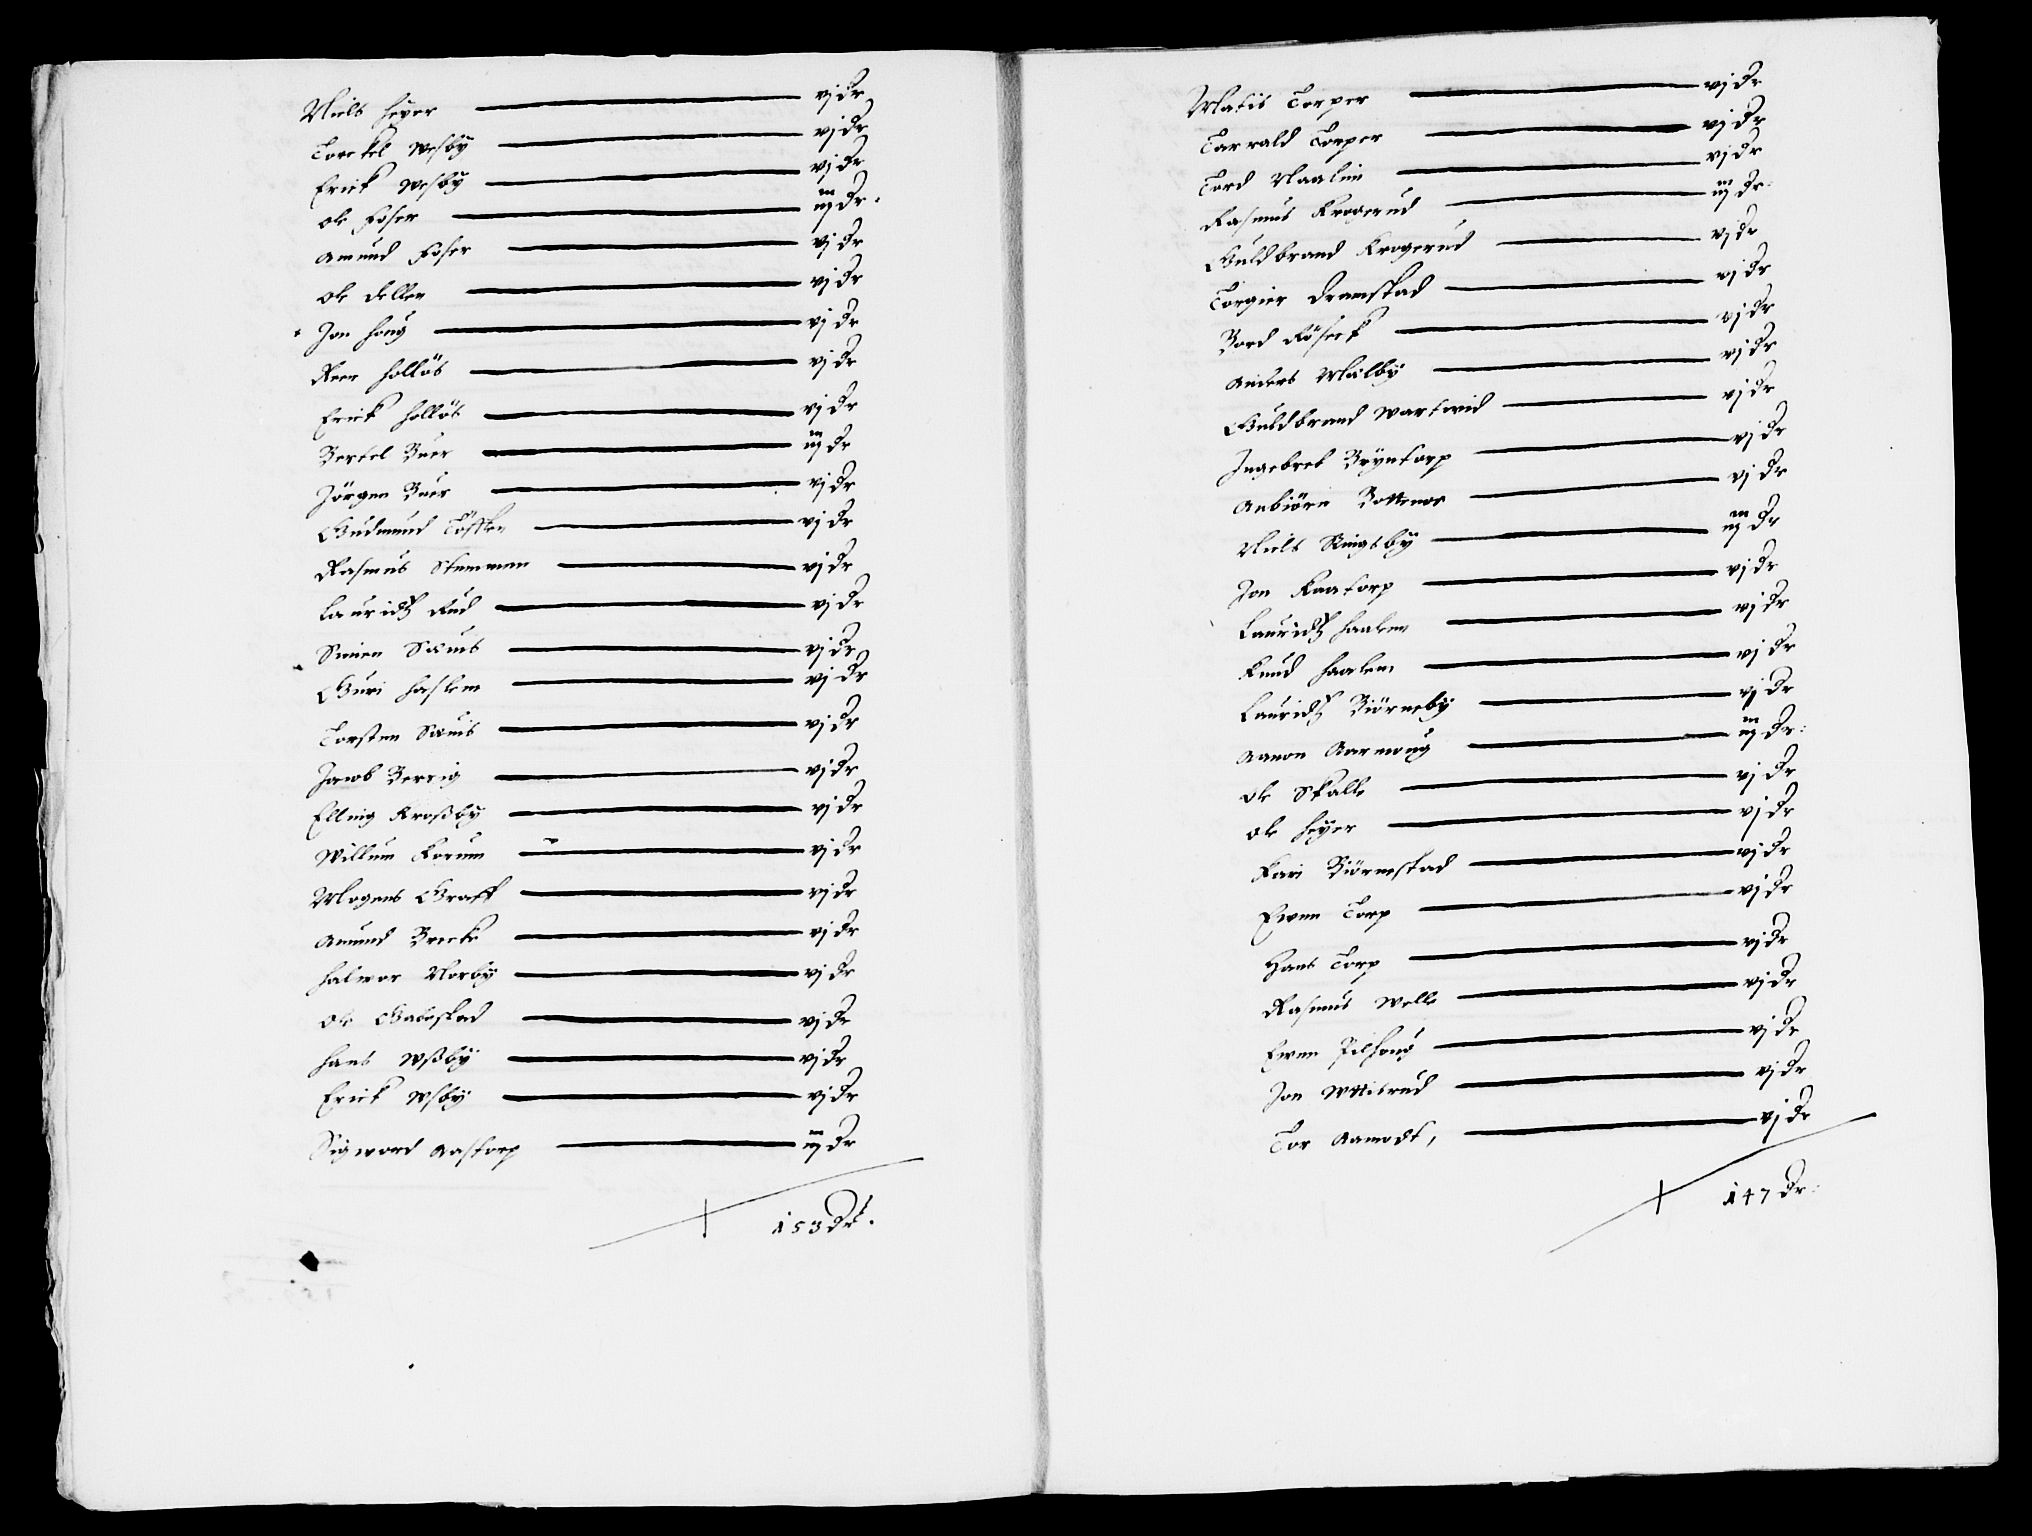 Niels Heyer vj Dr
Torckel Wesby vj Dr
Erick Wesby vj Dr
Ole Foser iij Dr.
Amund Foser vj Dr
Ole Dellen vj Dr
Jon Houg vj Dr
Reer Holløs vj Dr
Erick Holløs vj Dr
Bertel Buer iij Dr
Jörgen Buer vj Dr
Gudmund Töffter vj Dr
Rasmus Stemmen vj Dr
Lauridtz Rud vj Dr
Simen Sauis vj Dr
Guri Haslem vj Dr
Torsten Sauis vj Dr
Jacob Berrig vj Dr
Elling Kroßby vj Dr
Willum Korum vj Dr
Mogens Graff vj Dr
Amund Brecke vj Dr
Halwor Norby vj Dr
Ole Gabestad vj Dr
Hans Wßby vj Dr
Erick Wsby vj Dr
Sigword Aastorp iij Dr
153 Dr.
Matis Torper vj Dr
Tarrald Torper vj Dr
Tord Naalim vj Dr
Rasmus Krogerud iij Dr:
Guldbrand Krogerud vj Dr
Torgier Dramstad vj Dr
Bord Röseck vj Dr
Anders Mälby vj Dr
Guldbrand Wartwid vj Dr
Ingebret Bryntorp vj Dr
Anbiörn Bottener vj Dr
Niels Ringsby iij Dr
Jon Kaatorp vj Dr
Lauridtz Haaken vj Dr
Knud Haaken vj Dr
Lauridtz Biörneby vj Dr
Aanon Aarmoug iij Dr:
Ole Skalle vj Dr
Ole Heyer vj Dr
Kari Biörnstad vj Dr
Ewen Torp vj Dr
Hans Torp vj Dr
Rasmus Welle vj Dr
Ewen Pilhoug vj Dr
Jon Wttisrud vj Dr
Tor Aamodt, vj Dr
147 Dr: